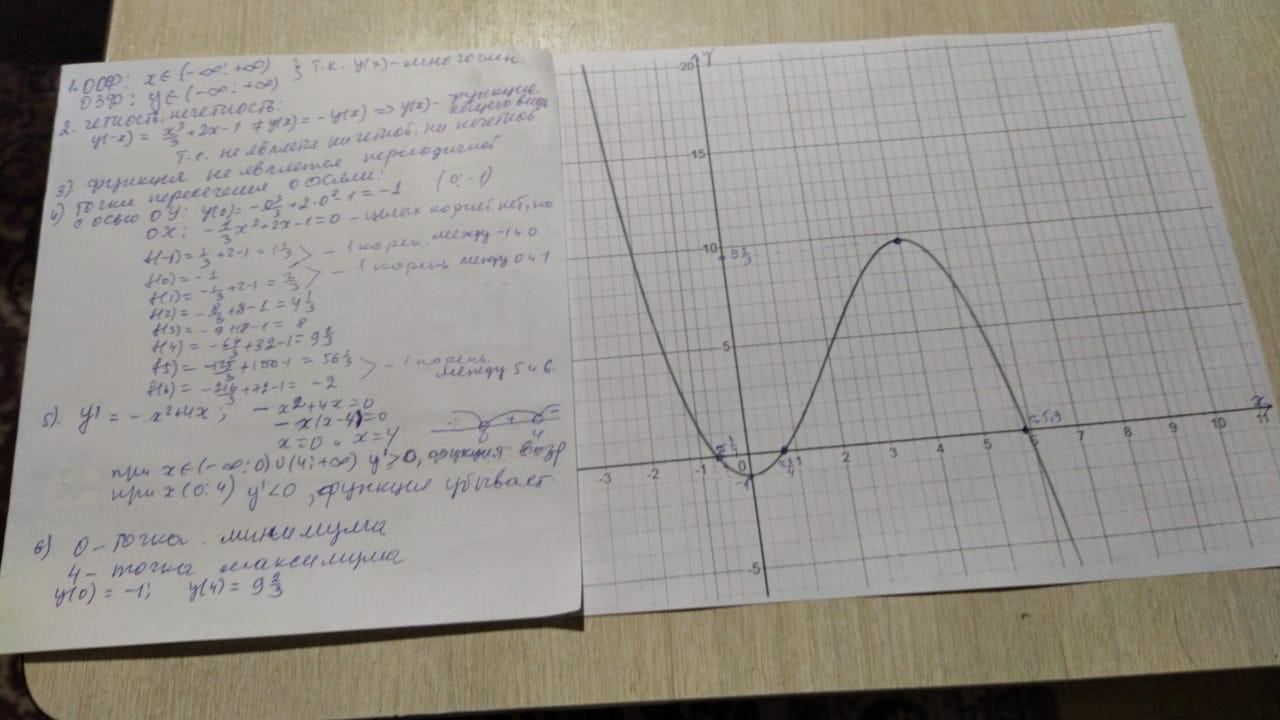 1. ООФ: x ∈ (-∞; +∞) } т.к. y(x) - многочлен
ОЗФ: y ∈ (-∞; +∞)
2. четность, нечетность:
y(-x) = x³/3 + 2x - 1 ≠ y(x) = -y(x) => y(x) - функция общего вида
т.е. не является ни четной, ни нечетной
3) функция не является периодичной
4) Точки пересечения с осями:
с осью OY: y(0) = -0³/3 + 2·0² - 1 = -1 (0; -1)
OX: -1/3 x³ + 2x - 1 = 0 - целых корней нет, но
f(-1) = 1/3 + 2 - 1 = 1 1/3 > - 1 корен. между -1 и 0
f(0) = -1
f(1) = -1/3 + 2 - 1 = 2/3 > - 1 корень между 0 и 1
f(2) = -8/3 + 8 - 1 = 4 1/3
f(3) = -9 + 18 - 1 = 8
f(4) = -64/3 + 32 - 1 = 9 2/3
f(5) = -125/3 + 100 - 1 = 56 1/3 > - 1 корень между 5 и 6.
f(6) = -216/3 + 72 - 1 = -2
5). y' = -x² + 4x; -x² + 4x = 0
-x(x-4) = 0
x = 0 и x = 4
- + -
0 4
при x ∈ (-∞; 0) ∪ (4; +∞) y' > 0, функция возр
при x (0; 4) y' < 0, функция убывает
6) 0 - точка минимума
4 - точка максимума
y(0) = -1; y(4) = 9 2/3
20 y
15
10
9 2/3
5
≈5,9
x
-3 -2 -1 0 1 2 3 4 5 6 7 8 9 10 11
-1
-5